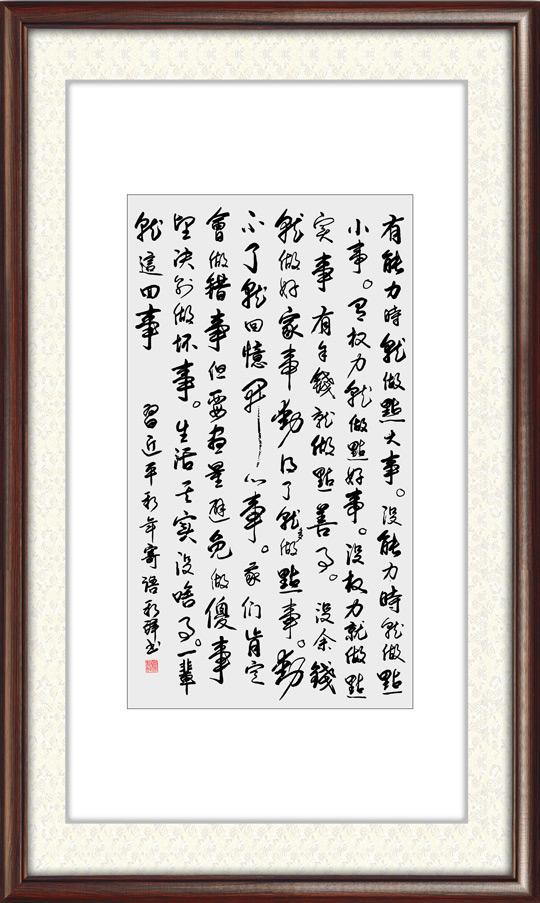 有能力時就做點大事。沒能力時就做點
小事。有权力就做點好事。沒权力就做點
实事 有余錢就做點善事。沒余錢
就做好家事 動得了就多做點事。動
不了就回憶開心事。我们肯定
會做錯事但要盡量避免做傻事
堅决别做坏事。生活其实沒啥事。一輩
就這四事
習近平新年寄語 书